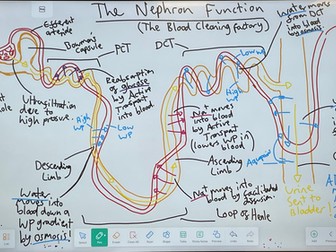 The Nephron Function
(The Blood Cleaning factory)
Efferent
arteriole
Bowman's
Capsule
PCT
DCT
Low WP
Water moves
from DCT
into blood
by osmosis!
Ultrafiltration
due to
high pressure.
Reabsorption
of glucose
by Active
Transport
into blood
High
WP
Low
WP
High
WP
Na+ moves
into blood
by Active
Transport
(lowers WP in
blood)
Descending
Limb
Ascending
Limb
Water
moves into
blood down a
WP gradient
by osmosis!
Na+ moves into
blood by facilitated
diffusion.
Loop of Henle
Urine
Sent to
Bladder!